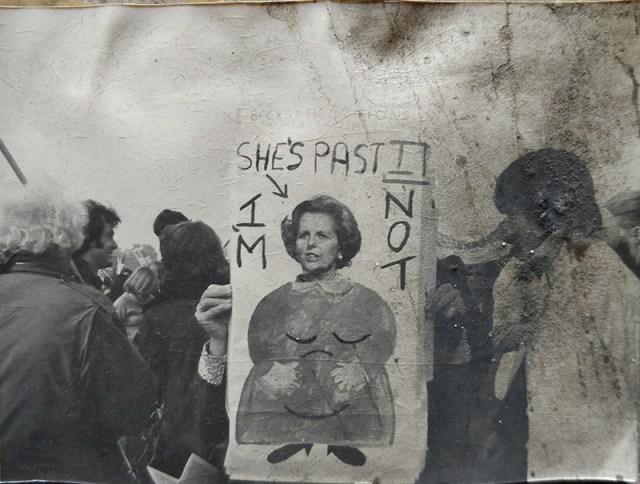 SHE'S PAST IT
I'M
NOT